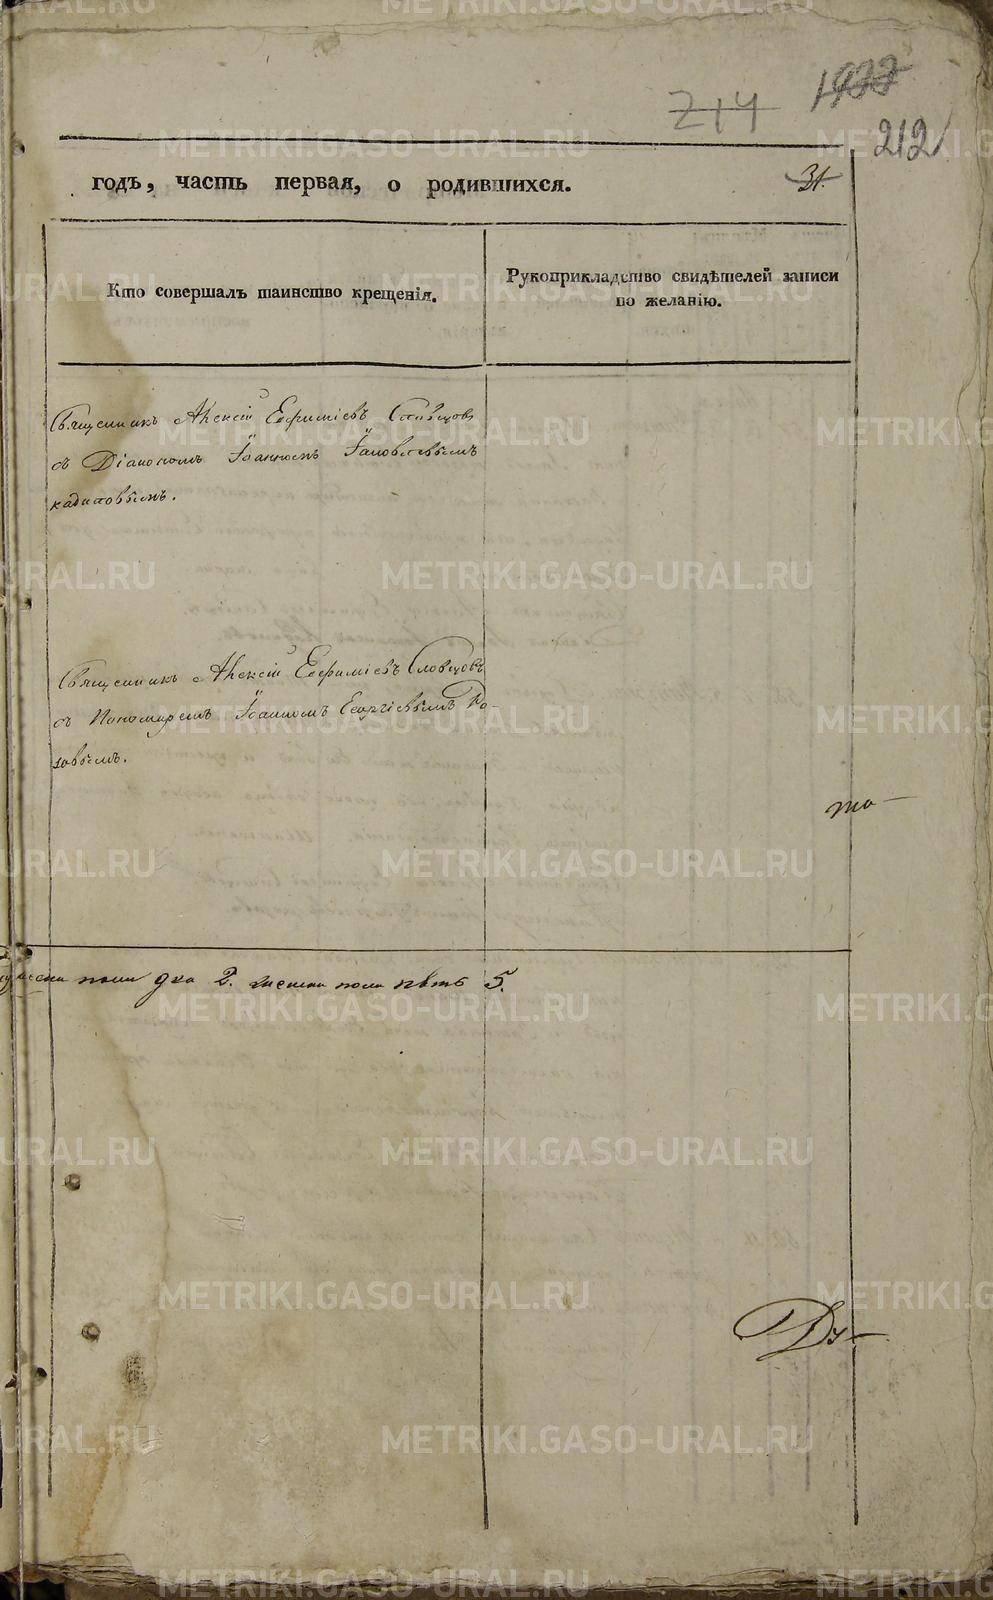 1477
214
212
годъ, часть первая, о родившихся.
31.
Кто совершалъ таинство крещенія.
Рукоприкладство свидѣтелей записи
по желанію.
Священникъ Алексій Евфиміевъ Словцовъ
съ Діакономъ Іоанномъ Іаковлевымъ
Кадиловымъ.
Священникъ Алексій Евфиміевъ Словцовъ
съ Пономаремъ Іоанномъ Георгіевымъ По-
повымъ.
то
пола два 2. женска пола пять 5.
Ду-
METRIKI.GASO-URAL.RU